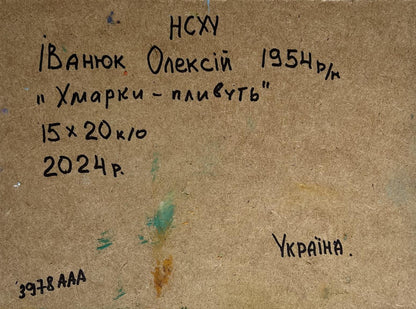 НСХУ
Іванюк Олексій 1954 р/н
"Хмарки - пливуть"
15 х 20 к/о
2024 р.
Україна.
3978 ААА